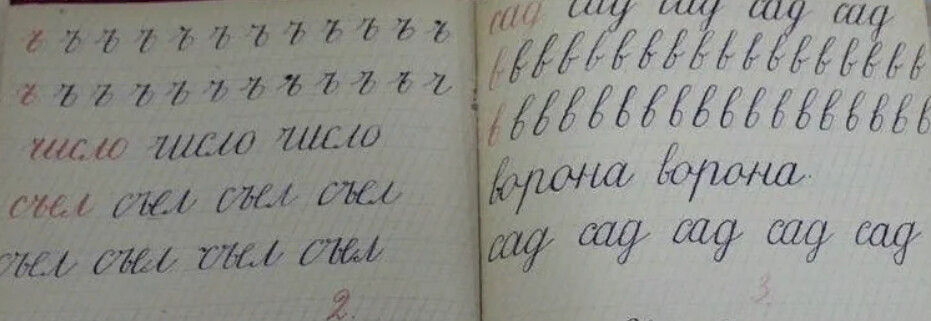 ъ ъ ъ ъ ъ ъ ъ ъ ъ ъ ъ ъ
ъ ъ ъ ъ ъ ъ ъ ъ ъ ъ ъ ъ
число число число
съел съел съел съел
съел съел съел съел
2.
сад сад сад сад сад
в в в в в в в в в в в в в в в в в в
в в в в в в в в в в в в в в в в в в
ворона ворона.
сад сад сад сад сад
3.